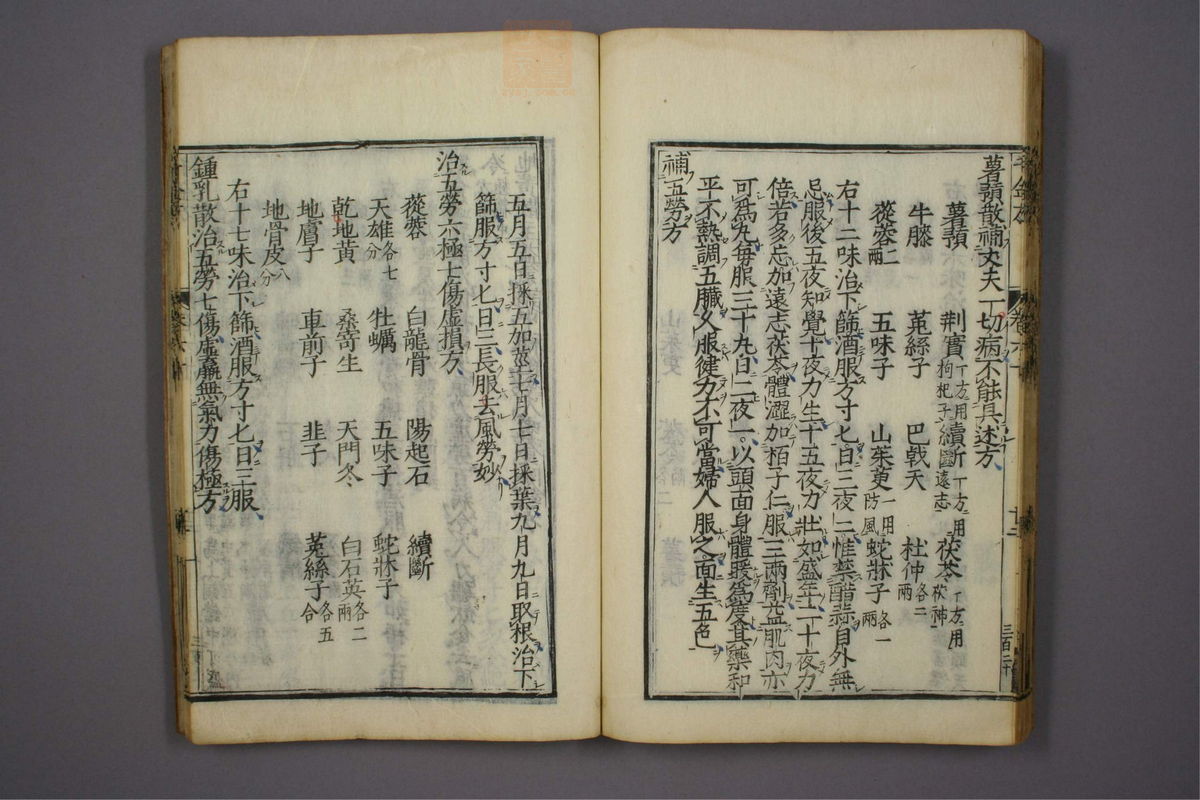 薯蕷散補丈夫一切病不能具述方
薯蕷 荆實一方用枸杞子 續斷一方用遠志 茯苓一方用茯神
牛膝 菟絲子 巴戟天 杜仲各二兩
蓯蓉二兩 五味子 山茱萸一用防風 蛇牀子各一兩
右十二味治下篩酒服方寸匕日三夜二惟禁醋蒜自外無
忌服後五夜知覺十夜力生十五夜力壯如盛年二十夜力
倍若多忘加遠志茯苓體澀加栢子仁服三兩劑益肌肉亦
可爲丸每服三十九日二夜一以頭面身體暖爲度其藥和
平不熱調五臟久服健力不可當婦人服之面生五色
補五勞方
五月五日採五加莖七月七日採葉九月九日取根治下
篩服方寸匕日三長服去風勞妙
治五勞六極七傷虛損方
蓯蓉 白龍骨 陽起石 續斷
天雄各七分 牡蠣 五味子 蛇牀子
乾地黄 桑寄生 天門冬 白石英各二兩
地膚子 車前子 韭子 菟絲子各五合
地骨皮八分
右十七味治下篩酒服方寸匕日三服
鍾乳散治五勞七傷虛羸無氣力傷極方